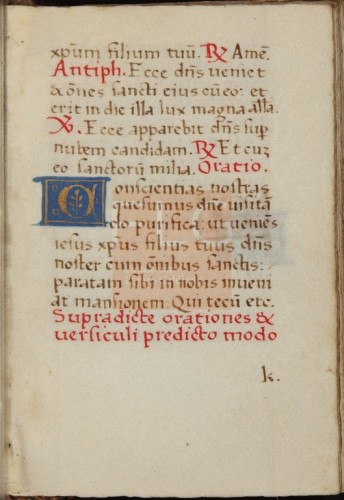 xp̄um filium tuū. ℟ Amē.
Antiph. Ecce dn̄s veniet
& oēs sancti eius cū eo: et
erit in die illa lux magna al̄l̄a.
℣. Ecce apparebit dn̄s sup̄
nubem candidam. ℟ Et cuz
eo sanctorū milia. Oratio.
Conscientias nostras
quesumus dn̄e visitā
do purifica: ut veniēs
iesus xp̄us filius tuus dn̄s
noster cum oībus sanctis:
paratam sibi in nobis inueni
at mansionem. Qui tecū etc.
Supradicte orationes &
versiculi predicto modo
k.